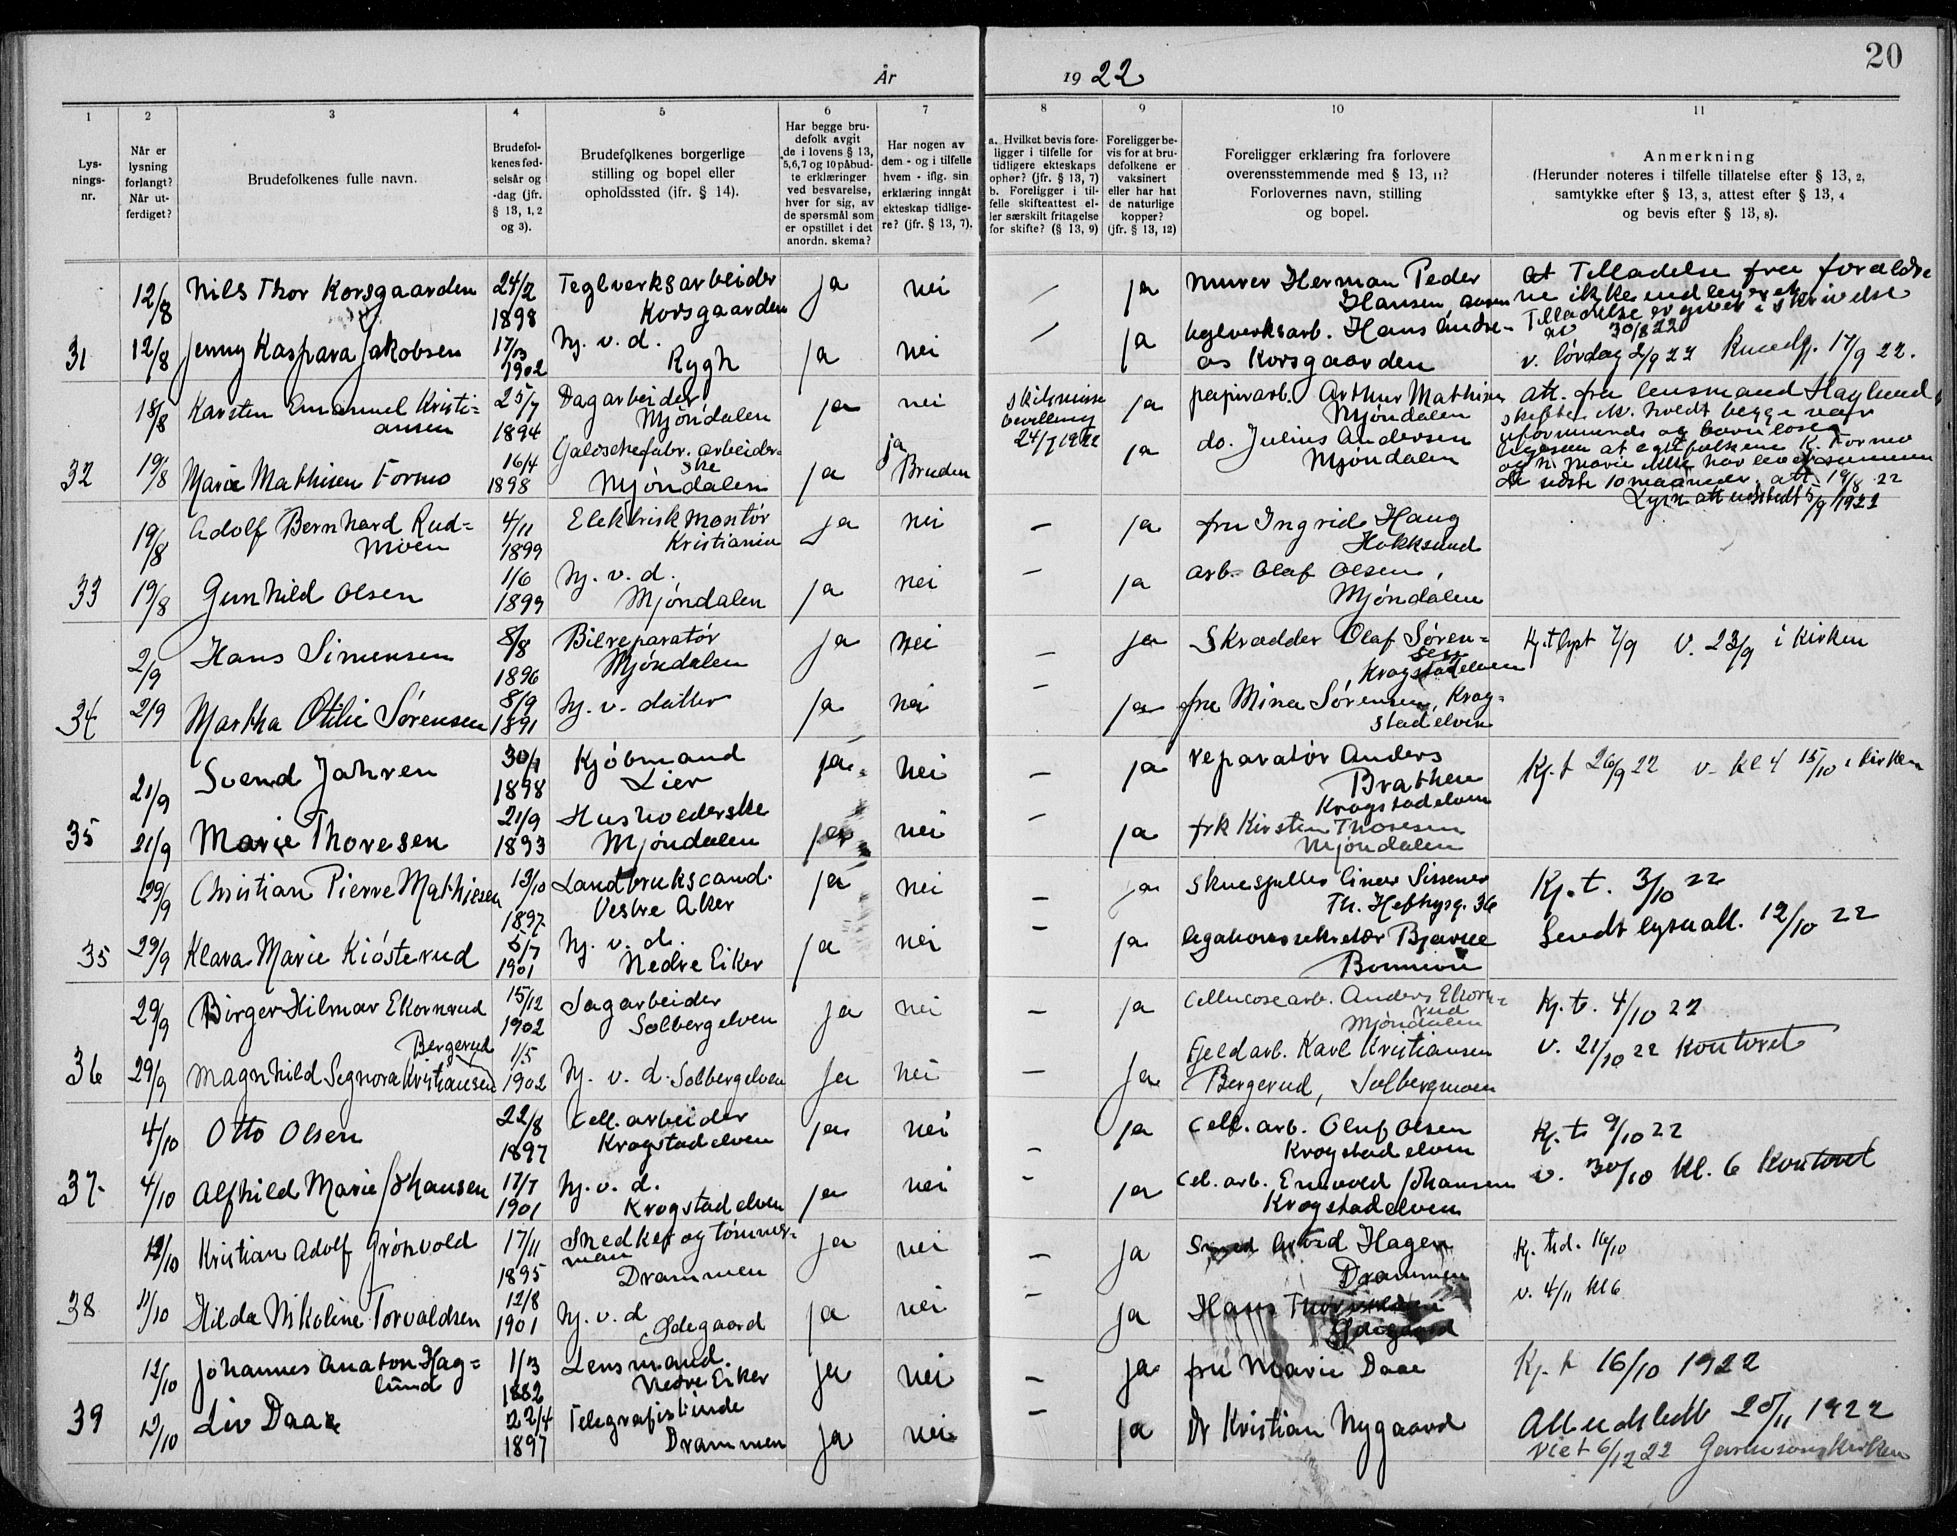 20
År 1922
1
2
3
4
5
6
7
8
9
10
11
Lys-
nings-
nr.
Når er
lysning
forlangt?
Når ut-
ferdiget?
Brudefolkenes fulle navn.
Brudefol-
kenes fød-
selsår og
-dag (jfr.
§ 13, 1, 2
og 3).
Brudefolkenes borgerlige
stilling og bopel eller
opholdssted (jfr. § 14).
Har begge bru-
defolk avgit
de i lovens § 13,
5,6,7 og 10 påbud-
te erklæringer
ved besvarelse,
hver for sig, av
de spørsmål som
er opstillet i det
anordn. skema?
Har nogen av
dem - og i tilfelle
hvem - iflg. sin
erklæring inngåt
ekteskap tidlige-
re? (jfr. § 13, 7).
a. Hvilket bevis fore-
ligger i tilfelle for
tidligere ekteskaps
ophør? (jfr. § 13, 7)
b. Foreligger i til-
felle skifteattest el-
ler særskilt fritagelse
for skifte? (§ 13, 9)
Foreligger be-
vis for at bru-
defolkene er
vaksinert
eller har hat
de naturlige
kopper?
(jfr. § 13, 12)
Foreligger erklæring fra forlovere
overensstemmende med § 13, 11?
Forlovernes navn, stilling
og bopel.
Anmerkning
(Herunder noteres i tilfelle tillatelse efter § 13, 2,
samtykke efter § 13, 3, attest efter § 13, 4
og bevis efter § 13, 8).
12/8 Nils Thor Korsgaarden 24/2 1898 Teglverksarbeider
Korsgaarden ja nei / ja murer Herman Peder
Hansen, Aasen
at Tilladelse fra forældre
ne ikke indleveret
Tilladelse er givet i skrivelse
av 30/8 22
31 12/8 Jenny Kaspara Jakobsen 17/3 1902 hj. v. d.
Rygh ja nei / ja teglverksarb. Hans Andre-
as Korsgaarden
v. lørdag 2/9 22 17/9 22.
18/8 Karsten Emanuel Kristi-
ansen 25/7 1894 Dagarbeider
Mjøndalen ja nei skilsmisse
bevilling
24/7 1922 ja papirarb. Arthur Mathisen
Mjøndalen
att. fra lensmand Haglund,
32 19/8 Marie Mathisen Formo 16/4 1898 Galoschefabr. arbeider-
ske
Mjøndalen ja ja
Bruden ja do. Julius Andersen
Mjøndalen
de sidste 10 maaneder. att. 19/8 22
Lysn. att. utstedt 5/9 1922
19/8 Adolf Bernhard Rud-
moen 4/11 1899 Elektrisk montør
Kristiania ja nei — ja fru Ingrid Haug
Hokksund
33 19/8 Gunhild Olsen 1/6 1899 hj. v. d.
Mjøndalen ja nei — ja arb. Olaf Olsen,
Mjøndalen
2/9 Hans Simensen 8/8 1896 Bilreparatør
Mjøndalen ja nei — ja Skrædder Olaf Søren-
sen
Krogstadelven
Kj.t lyst 7/9 V. 23/9 i Kirken
34 2/9 Martha Otilie Sørensen 8/9 1891 hj. v. datter ja nei — ja fru Mina Sørensen, Krog-
stadelven
21/9 Svend Jahren 30/1 1898 Kjøbmand
Lier ja nei — ja reparatør Anders
Brathen
Krogstadelven
Kj. t 26/9 22 v. kl 4 15/10 i Kirken
35 21/9 Marie Thoresen 21/9 1893 Husholderske
Mjøndalen ja nei — ja frk Kirsten Thoresen
Mjøndalen
29/9 Christian Pierre Mathiesen 13/10 1897 Landbrukscand.
Vestre Aker ja nei — ja Skuespiller Einar Sissener
Th. Heftysg. 36
Kj. t. 3/10 22
35 29/9 Klara Marie Kiøsterud 5/7 1901 hj. v. d.
Nedre Eiker ja nei — ja legationssekretær Bjarne
Sendt lysn att. 12/10 22
29/9 Birger Hilmar Ekornrud 15/12 1902 Sagarbeider
Solbergelven ja nei — ja Cellulosearb. Anders Ekorn-
rud
Mjøndalen
Kj. t. 4/10 22
Bergerud
36 29/9 Magnhild Signora Kristiansen 1/5 1902 hj. v. d. Solbergelven ja nei — ja Fjeldarb. Karl Kristiansen
Bergerud, Solbergmoen
v. 21/10 22 kontoret
4/10 Otto Olsen 22/8 1897 Cell. arbeider
Krogstadelven ja nei — ja Cell. arb. Oluf Olsen
Krogstadelven
Kj. t. 9/10 22
37 4/10 Alfhild Marie Johansen 17/7 1901 hj. v. d.
Krogstadelven ja nei - ja Cel. arb. Enevold Johansen
Krogstadelven
v. 30/10 kl. 6 kontoret
12/10 Kristian Adolf Grønvold 17/11 1895 Snedker og tømmer-
man
Drammen ja nei — ja Smed Hagen
Drammen
Kj. tid. 16/10
38 11/10 Hilda Nikoline Torvaldsen 12/8 1901 hj. v. d
Ødegaard ja nei — ja Hans
Ødegaard
v. 4/11 kl 6
12/10 Johannes Anaton Hag-
lund 1/3 1882 Lensmand.
Nedre Eiker ja nei — ja fru Marie Daae
Kj. t 16/10 1922
39 12/10 Liv Daae 22/4 1897 Telegrafistinde
Drammen ja nei — ja Dr Kristian Nygaard
Att utstedt 20/11 1922
Viet 6/12 22 Garnisonskirken